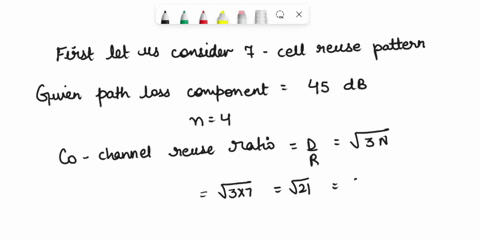 First let us consider 7 - cell reuse pattern
Given path loss component = 45 dB
n = 4
Co - channel reuse ratio = D/R = √3N
= √3×7 = √21 =